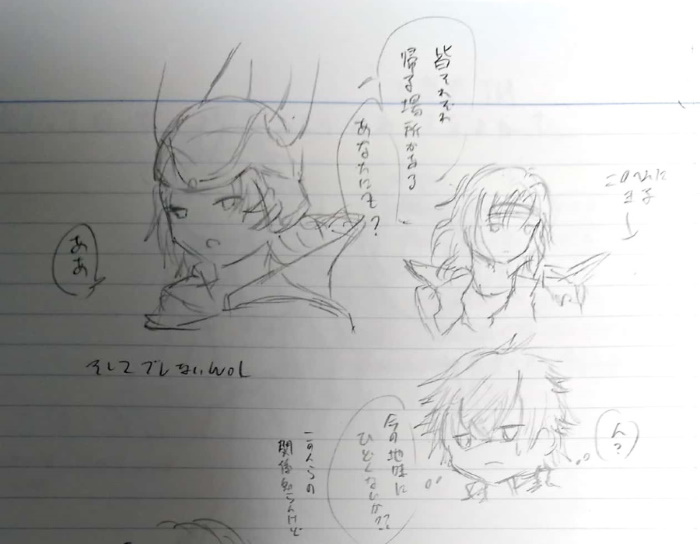 皆それぞれ
帰る場所がある
あなたにも?
ああ
そしてブレないWOL
ん?
今の地味に
ひどくないか??
この人らの
関係知らんけど